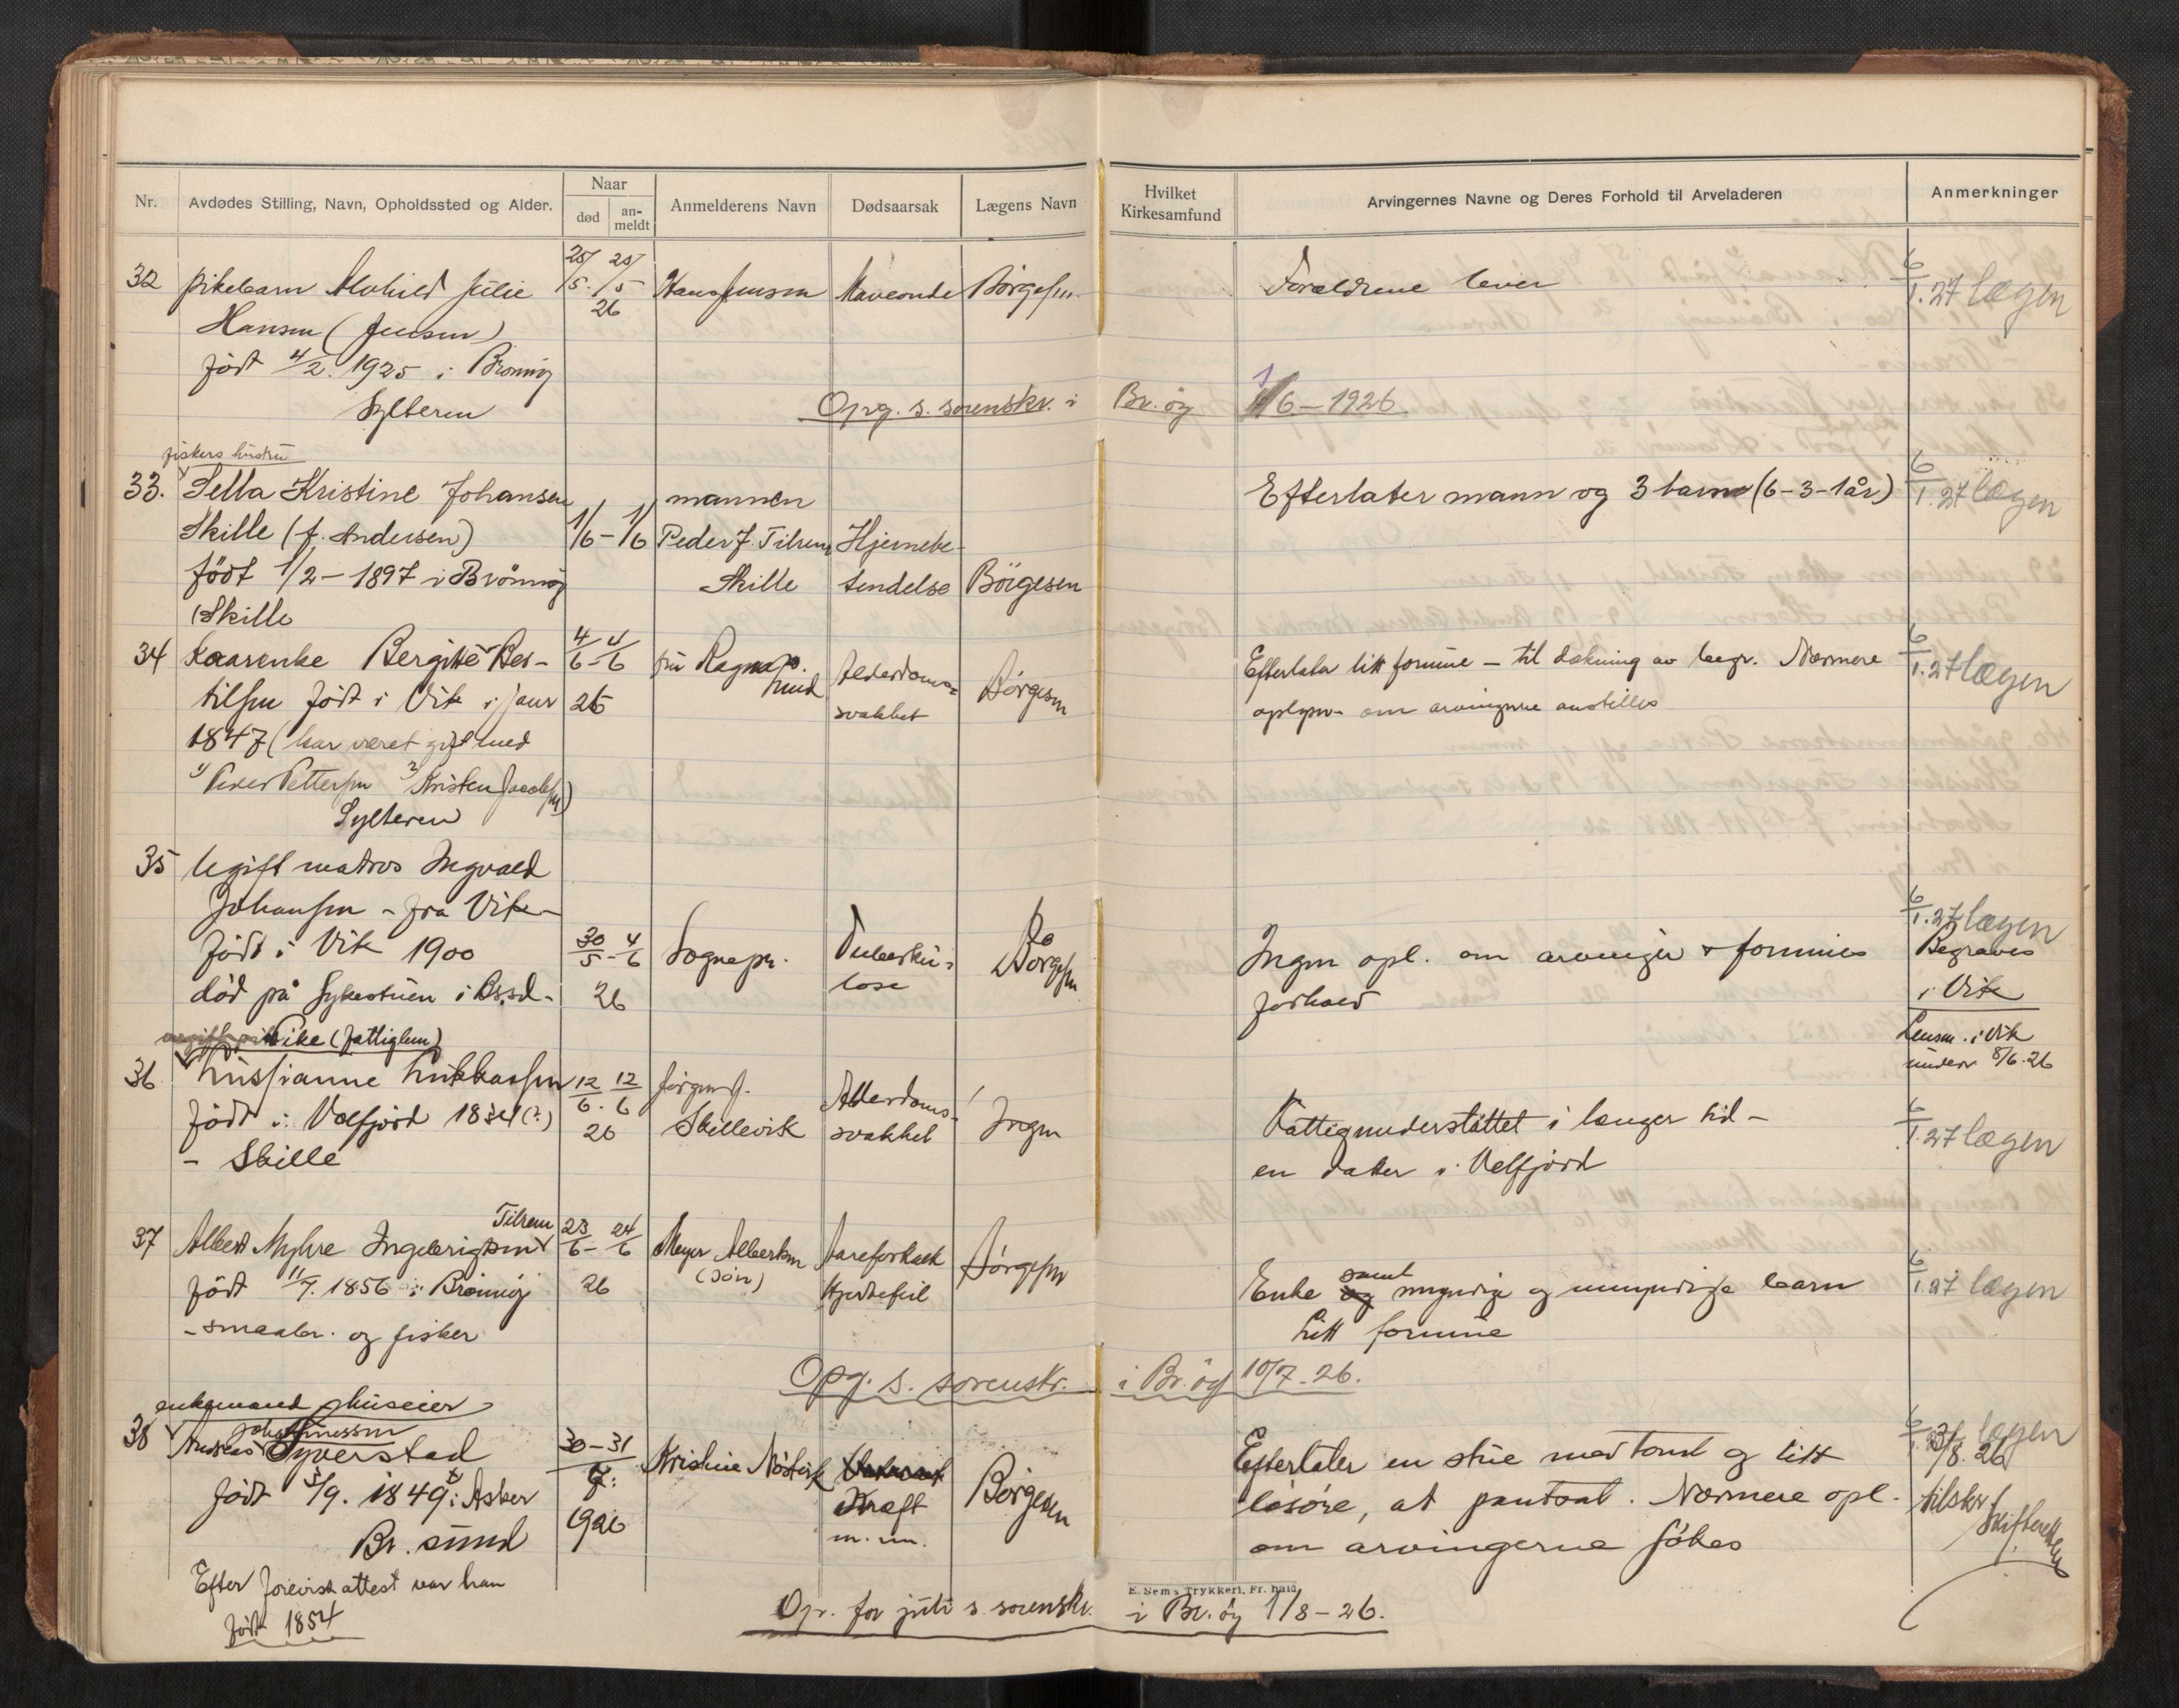 Nr.
Avdødes Stilling, Navn, Opholdssted og Alder.
Naar
død
an-
meldt
Anmelderens Navn
Dødsaarsak
Lægens Navn
Hvilket
Kirkesamfund
Arvingernes Navne og Deres Forhold til Arveladeren
Anmerkninger
32 pikebarn Alvhild Julie
Hansen (Jensen)
født 4/2. 1925 i Brønnøy
Sylteren
25/5. 25/5
26
Hans Jensen
Maveonde
Børgesen
Forældrene lever
6/1.27 lægen
Opg. s. sorenskr. i Br.øy 1/6 – 1926
fiskers hustru
33. Sella Kristine Johansen
Skille (f. Andersen)
født 1/2 – 1897 i Brönnöy
(Skille
1/6 – 1/6
mannen
Peder J. Tilrem
Skille
Hjernebe-
tendelse
Börgesen
Efterlater mann og 3 barn (6-3-1år)
6/1.27 lægen
34 Kaarenke Bergitte Ber-
tilsen født i Vik i jaur
1847 (har været gift med
1) Peder Pettersen 2) Kristen Jacobsen)
Sylteren
4/6 – 4/6
26
fru Ragna
Alderdoms-
svakhet
Børgesen
Efterlater litt formue – til dækning av begr. Nærmere
oplysn. om arvingerne anstilles
6/1.27 lægen
35 Ugift matros Ingvald
Johansen – fra Vik –
født i Vik 1900
død på Sykestuen i Br.sd.
30/5 – 4/6
26
Sognepr.
Tuberku-
lose
Børgesen
Ingen opl. om arvinger & formues
forhold
6/1.27 lægen
Begraves
i Vik
Lensm. i Vik
underr. 8/6.26
Pike (fattiglem)
36 Lukkassen
født i Velfjord 1834(?)
– Skille
12/6. 12/6
26
Jørgen J.
Skillevik
Alderdoms-
svakhet
Ingen
Fattigunderstöttet i længer tid –
en datter i Velfjord
6/1.27 lægen
Tilrem
37 Albert Myhre Ingebrigtsen
født 11/7. 1856 i Brønnøy
– smaabr. og fisker
23/6 – 24/6
26
Meyer Albertsen
(søn)
Aareforkalk
Hjertefeil
Børgesen
Enke og samt myndige og umyndige barn
Litt formue
6/1.27 lægen
Opg. s. sorenskr. i Br.öy 10/7.26.
enkemand, huseier
38 Andreas Johannessen
Syverstad
født 5/9. 1849 i Asker
Br. sund
Efter forevist attest var han
født 1854
30 – 31
7.
1926
Kristine Nöstvik
Kræft
m. m.
Börgesen
Efterlater en stue med tomt og litt
lösöre, at pantsat. Nærmere opl.
om arvingerne sökes
lægen
3/8.26
tilskr.
Skifteretten
E. Sem's Trykkeri, Fr.hald
Op. for juli s. sorenskr. i Br.öy 1/8 – 26.